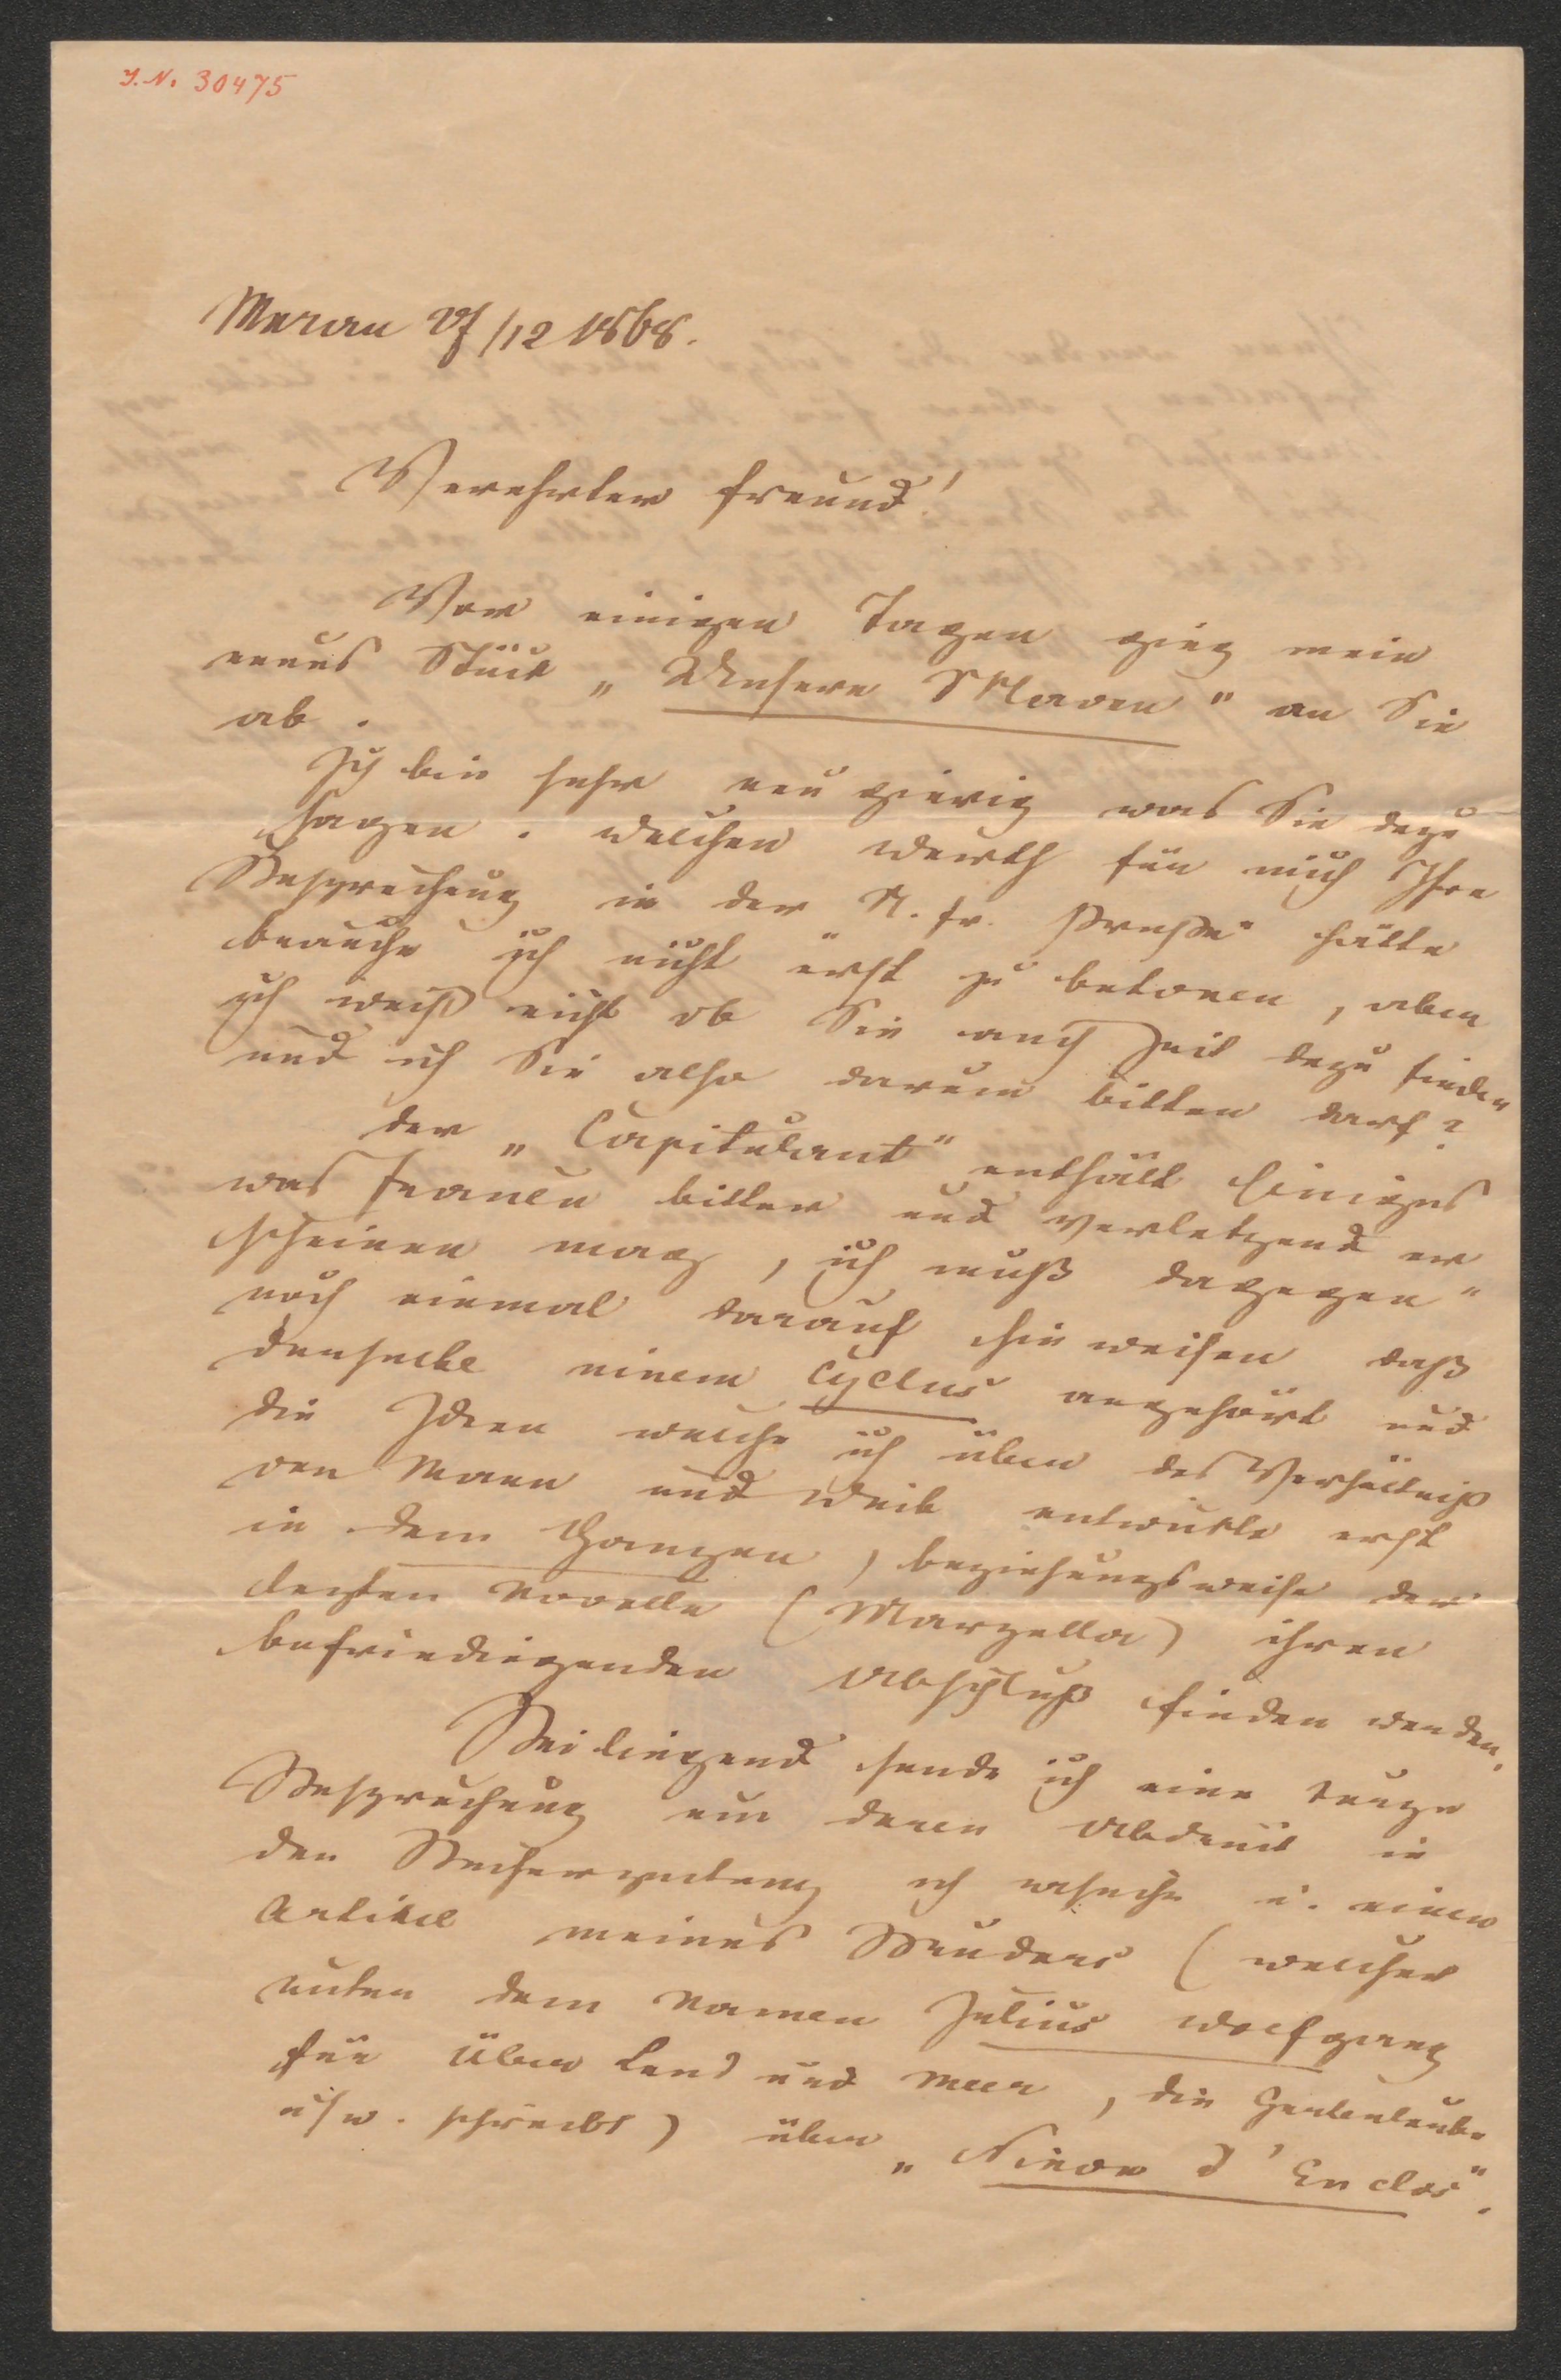 I.N. 30475
Meran /12 1868.
Verehrter Freund!
Vor einigen Tagen ging mein
neues Stück „Unsere Sklaven" an Sie
ab.
Ich bin sehr neugierig was Sie dazu
sagen. Welchen Werth für mich Ihre
Besprechung in der „N. fr. Presse" hätte
brauche ich nicht erst zu betonen, aber
ich weiß nicht ob Sie auch Zeit dazu finden
und ich Sie also darum bitten darf?
Der „Capitulant" enthält Einiges
was Frauen bitter und verletzend er
scheinen mag, ich muß dagegen
noch einmal darauf hinweisen daß
derselbe einem Cyclus angehört und
die Ideen welche ich über das Verhältniß
von Mann und Weib entwickle erst
in dem Ganzen, beziehungsweise der
letzten Novelle (Marzella) ihren
befriedigenden Abschluß finden werden.
Beiliegend sende ich eine kurze
Besprechung um deren Abdruck in
der ich ersuche u. einen
Artikel meines Bruders (welcher
unter dem Namen Julius Wolfgang
für Über Land und Meer, die Gartenlaube
usw. schreibt) über „Ninon d'Enclos".